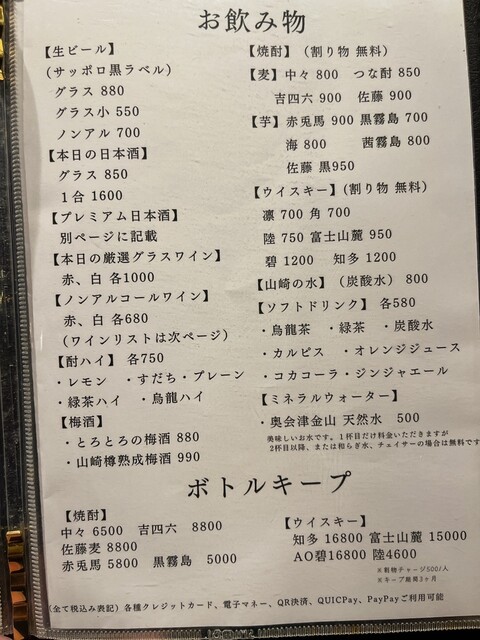 お飲み物
【生ビール】
（サッポロ黒ラベル）
グラス 880
グラス小 550
ノンアル 700
【本日の日本酒】
グラス 850
１合 1600
【プレミアム日本酒】
別ページに記載
【本日の厳選グラスワイン】
赤、白 各1000
【ノンアルコールワイン】
赤、白 各680
（ワインリストは次ページ）
【酎ハイ】 各750
・レモン ・すだち・プレーン
・緑茶ハイ ・烏龍ハイ
【梅酒】
・とろとろの梅酒 880
・山崎樽熟成梅酒 990
【焼酎】（割り物 無料）
【麦】中々 800 つな酎 850
吉四六 900 佐藤 900
【芋】赤兎馬 900 黒霧島 700
海 800 茜霧島 800
佐藤 黒950
【ウイスキー】（割り物 無料）
凛 700 角 700
陸 750 富士山麓 950
碧 1200 知多 1200
【山崎の水】（炭酸水） 800
【ソフトドリンク】 各580
・烏龍茶 ・緑茶 ・炭酸水
・カルピス ・オレンジジュース
・コカコーラ・ジンジャエール
【ミネラルウォーター】
・奥会津金山 天然水 500
美味しいお水です。１杯目だけ料金いただきますが
２杯目以降、または和らぎ水、チェイサーの場合は無料です
ボトルキープ
【焼酎】
中々 6500 吉四六 8800
佐藤麦 8800
赤兎馬 5800 黒霧島 5000
【ウイスキー】
知多 16800 富士山麓 15000
AO碧16800 陸4600
※割物チャージ500/人
※キープ期間3ヶ月
（全て税込み表記）各種クレジットカード、電子マネー、QR決済、QUICPay、PayPayご利用可能